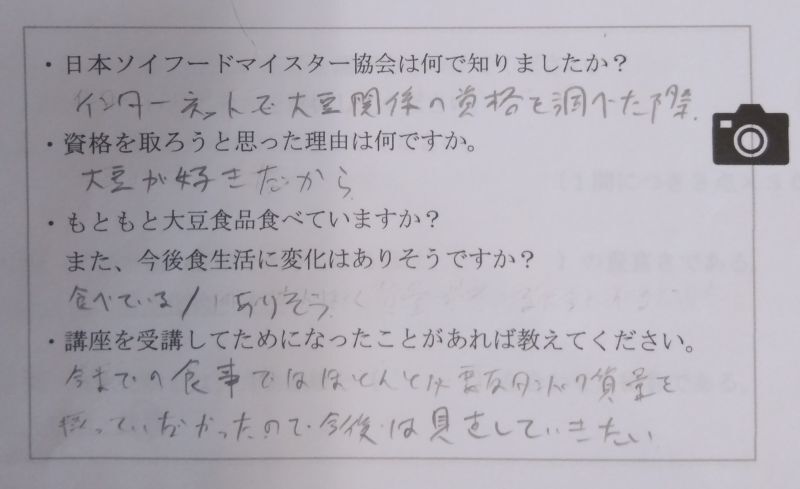 ・日本ソイフードマイスター協会は何で知りましたか？
インターネットで大豆関係の資格を調べた際、
・資格を取ろうと思った理由は何ですか。
大豆が好きだから
・もともと大豆食品食べていますか？
また、今後食生活に変化はありそうですか？
食べている/ありそう
・講座を受講してためになったことがあれば教えてください。
今までの食事ではほとんど必要なタンパク質量を
摂っていなかったので今後は していきたい